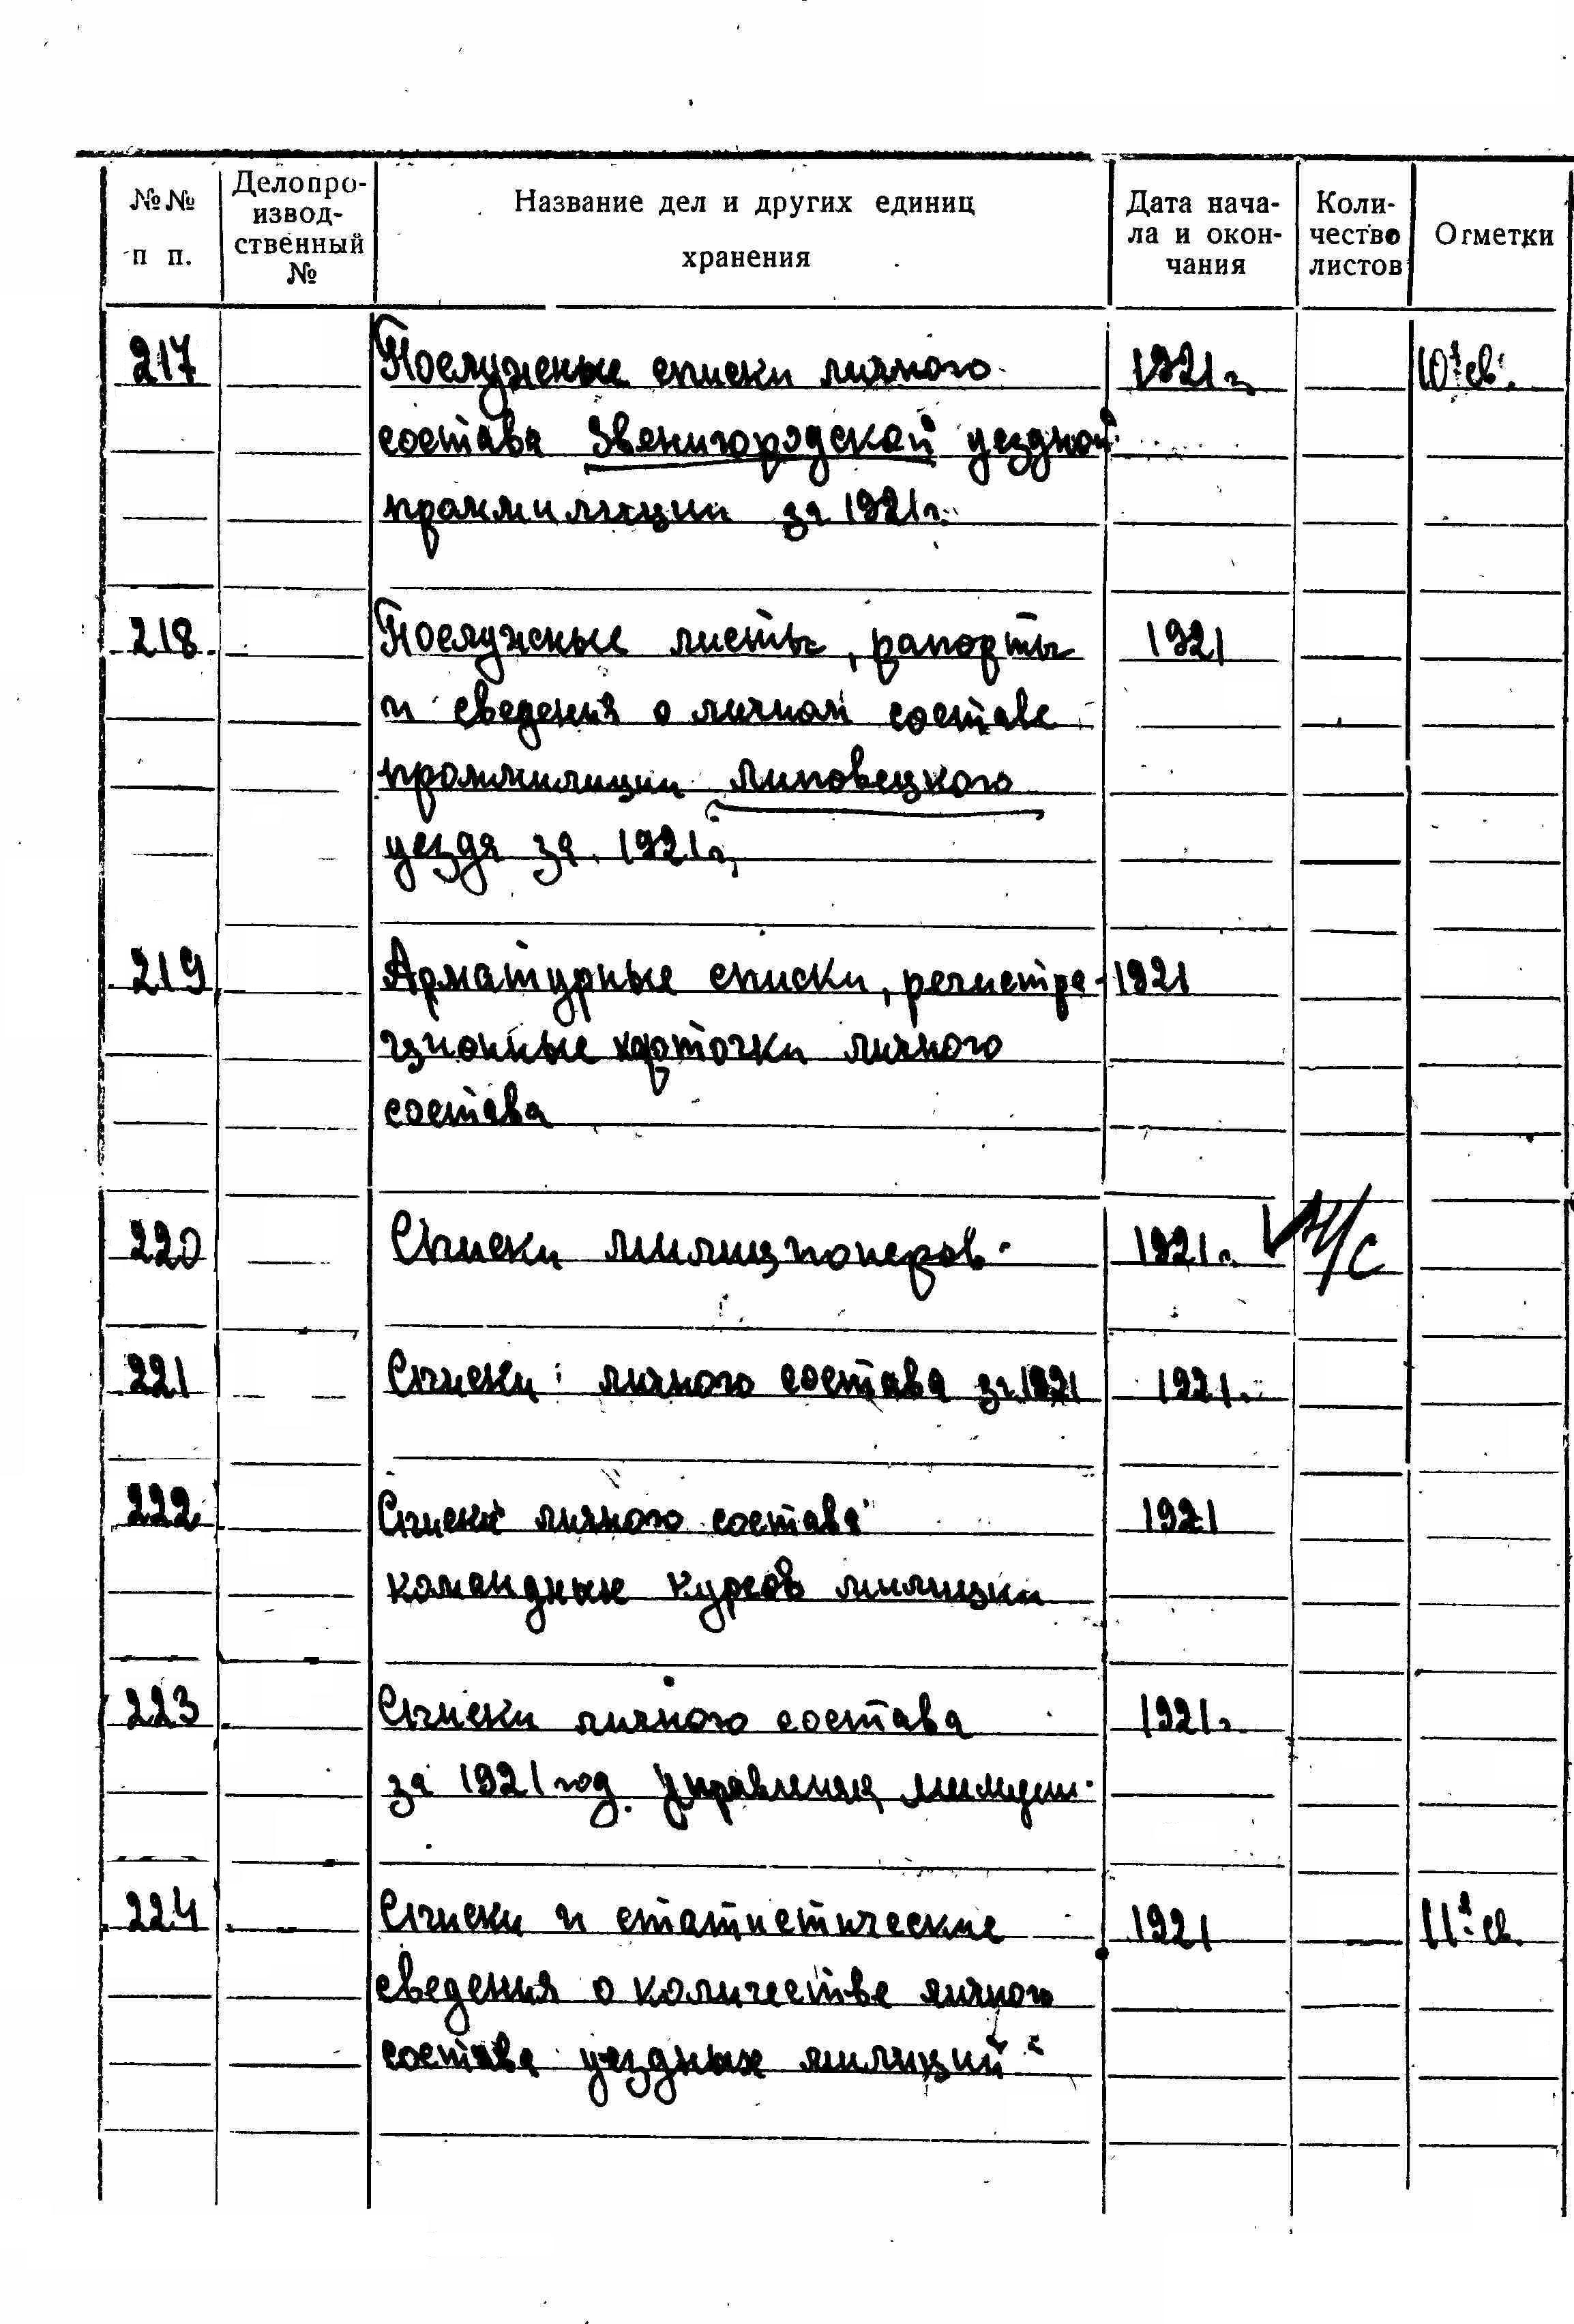 №№ п п.
Делопро-
извод-
ственный
№
Название дел и других единиц
хранения
Дата нача-
ла и окон-
чания
Коли-
чество
листов
Отметки
217 Послужные списки личного 1921г. 10 св.
состава Звенигородской уездной
проммилиции за 1921г.
218 Послужные листы, рапорты 1921
и сведения о личном составе
проммилиции Липовецкого
уезда за 1921г.
219 Арматурные списки, регистра- 1921
ционные карточки личного
состава
220 Списки милиционеров 1921г. Н/С
221 Списки личного состава за 1921 1921.
222 Списки личного состава 1921
командных курсов милиции
223 Списки личного состава 1921г.
за 1921 год. Управления
224 Списки и статистические 1921 11 св.
сведения о количестве личного
состава уездных милиций